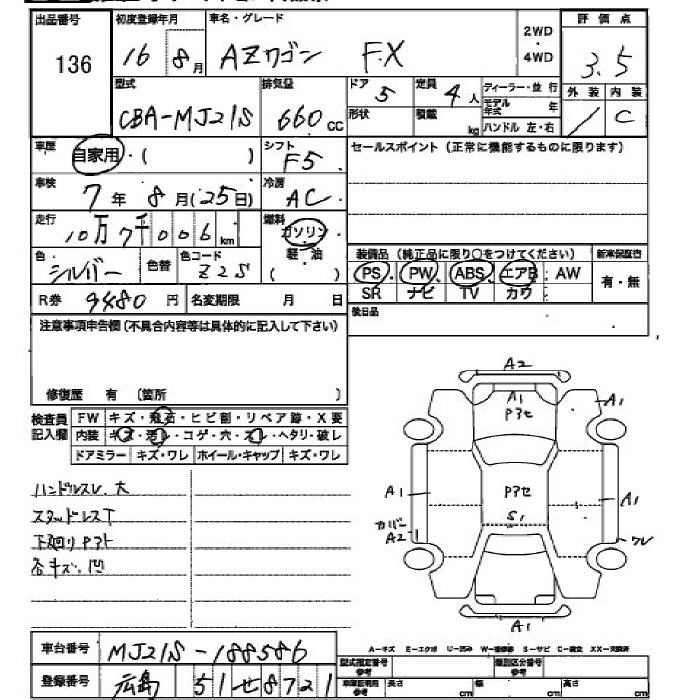 出品番号 初度登録年月 車名・グレード 2WD・4WD 評価点
136 16 8月 AZワゴン FX 3.5
型式 排気量 ドア 定員 ディーラー・並行 外装 内装
CBA-MJ21S 660 cc 5 4人 モデル年式 年 C
形状 積載 kg ハンドル 左・右
車歴 自家用・( ) シフト F5 セールスポイント(正常に機能するものに限ります)
車検 7年 8月(25日) 冷房 AC
走行 10万 7千 0 0 6 km 燃料 ガソリン・軽・油 ( )
色 シルバー 色替 色コード Z2S
装備品(純正品に限り○をつけてください) 新車保証書
PS・PW・ABS・エアB・AW 有・無
SR ナビ TV カワ
R券 9480円 名変期限 月 日
後日品
注意事項申告欄(不具合内容等は具体的に記入して下さい)
修復歴 有 (箇所 )
検査員記入欄 FW キズ・飛石・ヒビ割・リペア跡・X要
内装 キズ・汚レ・コゲ・穴・スレ・ヘタリ・破レ
ドアミラー キズ・ワレ ホイール・キャップ キズ・ワレ
ハンドルスレ大
スタッドレスT
下廻りPアト
各キズ、凹
A2
A1
Pアセ
A1
A1
Pアセ
S1
A1
カバー
A2
ワレ
A1
車台番号 MJ21S-188586
A-キズ E-エクボ U-凹み W-補修跡 S-サビ C-腐食 XX-交換済
登録番号 広島 51 せ 8721
型式指定番号 参考 類別区分番号 参考
車庫証明用 参考 長さ cm 幅 cm 高さ cm